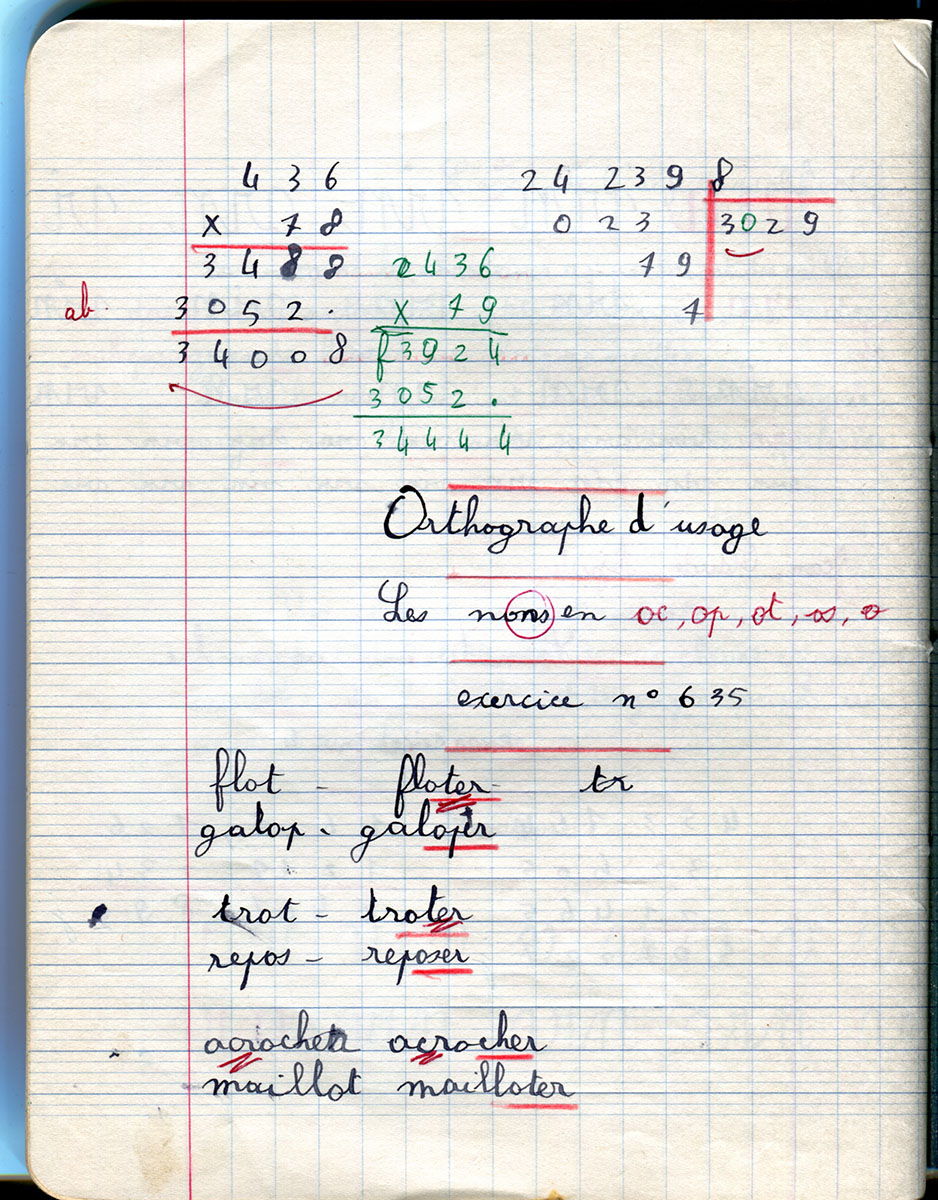 436
x 78
3488
ab. 3052.
34008
24 239 8
023 3029
79
7
2436
x 79
3924
3052.
34444
Orthographe d'usage
Les nons en oc, op, ot, os, o
exercice n° 635
flot - floter - tr
galop - galoper
trot - troter
repos - reposer
acrocher acrocher
maillot mailloter